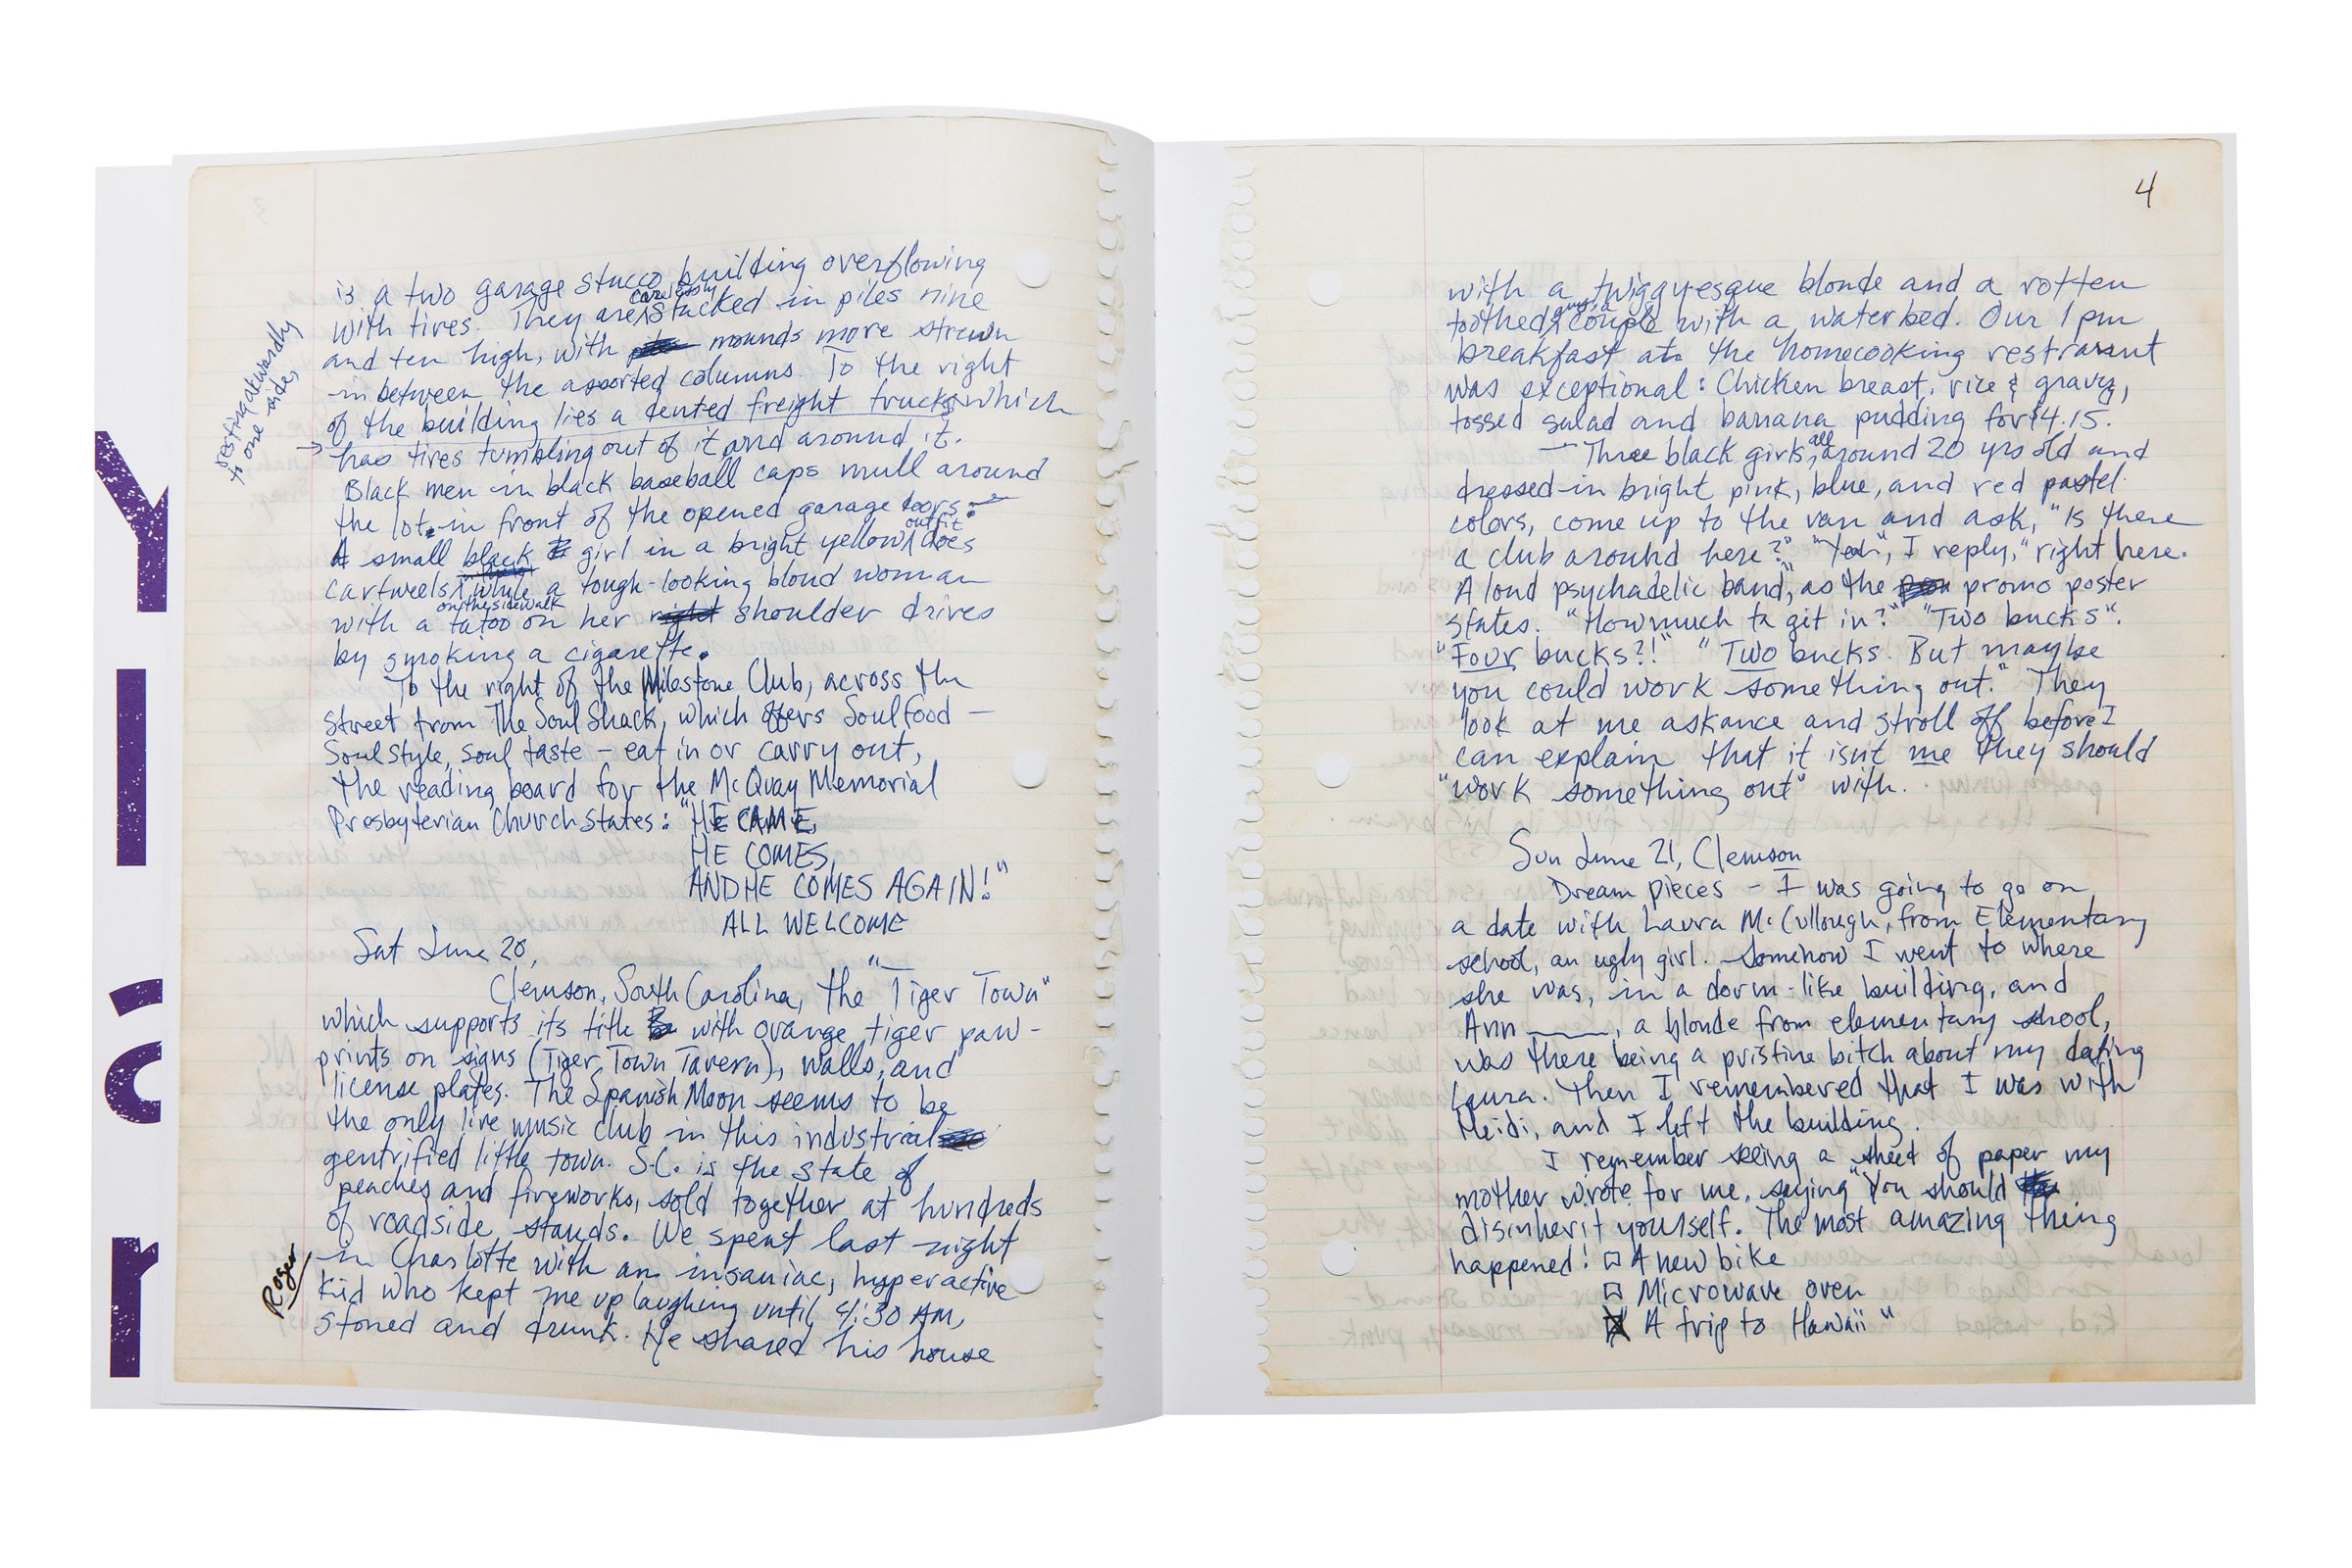 is a two garage stucco building overflowing
with tires. They are carelessly stacked in piles nine
and ten high, with mounds more strewn
in between the assorted columns. To the right
of the building lies a dented freight truck which
resting awkwardly
to one side,
→ has tires tumbling out of it and around it.
Black men in black baseball caps mull around
the lot in front of the opened garage doors.
A small black girl in a bright yellow outfit does
cartweels on the sidewalk while a tough-looking blond woman
with a tatoo on her right shoulder drives
by smoking a cigarette.
To the right of the Milestone Club, across the
street from The Soul Shack, which offers Soulfood —
Soul style, soul taste – eat in or carry out,
the reading board for the McQuay Memorial
Presbyterian Church states: "HE CAME,
HE COMES,
AND HE COMES AGAIN!"
ALL WELCOME
Sat June 20,
Clemson, South Carolina, the "Tiger Town"
which supports its title with orange tiger paw-
prints on signs (Tiger Town Tavern), walls, and
license plates. The Spanish Moon seems to be
the only live music club in this industrial
gentrified little town. S.C. is the state of
peaches and fireworks, sold together at hundreds
of roadside stands. We spent last night
in Charlotte with an insaniac, hyperactive
Roger
kid who kept me up laughing until 4:30 AM,
stoned and drunk. He shared his house
4
with a twiggyesque blonde and a rotten
toothed guy, a couple with a water bed. Our 1 pm
breakfast at the homecooking restraraunt
was exceptional: Chicken breast, rice & gravy,
tossed salad and banana pudding for $4.15.
— Three black girls, all around 20 yrs old and
dressed in bright pink, blue, and red pastel
colors, come up to the van and ask, "Is there
a club around here?" "Yeah", I reply, "right here.
A loud psychadelic band," as the promo poster
states. "How much to git in?" "Two bucks".
"Four bucks?!" "Two bucks. But maybe
you could work something out." They
look at me askance and stroll off before I
can explain that it isn't me they should
"work something out" with.
Sun June 21, Clemson
Dream pieces – I was going to go on
a date with Laura McCullough, from Elementary
school, an ugly girl. Somehow I went to where
she was, in a dorm-like building, and
Ann ____, a blonde from elementary shool,
was there being a pristine bitch about my dating
Laura. Then I remembered that I was with
Heidi, and I left the building.
I remember seeing a sheet of paper my
mother wrote for me, saying "You should
disinherit yourself. The most amazing thing
happened! □ A new bike
□ Microwave oven
☒ A trip to Hawaii"